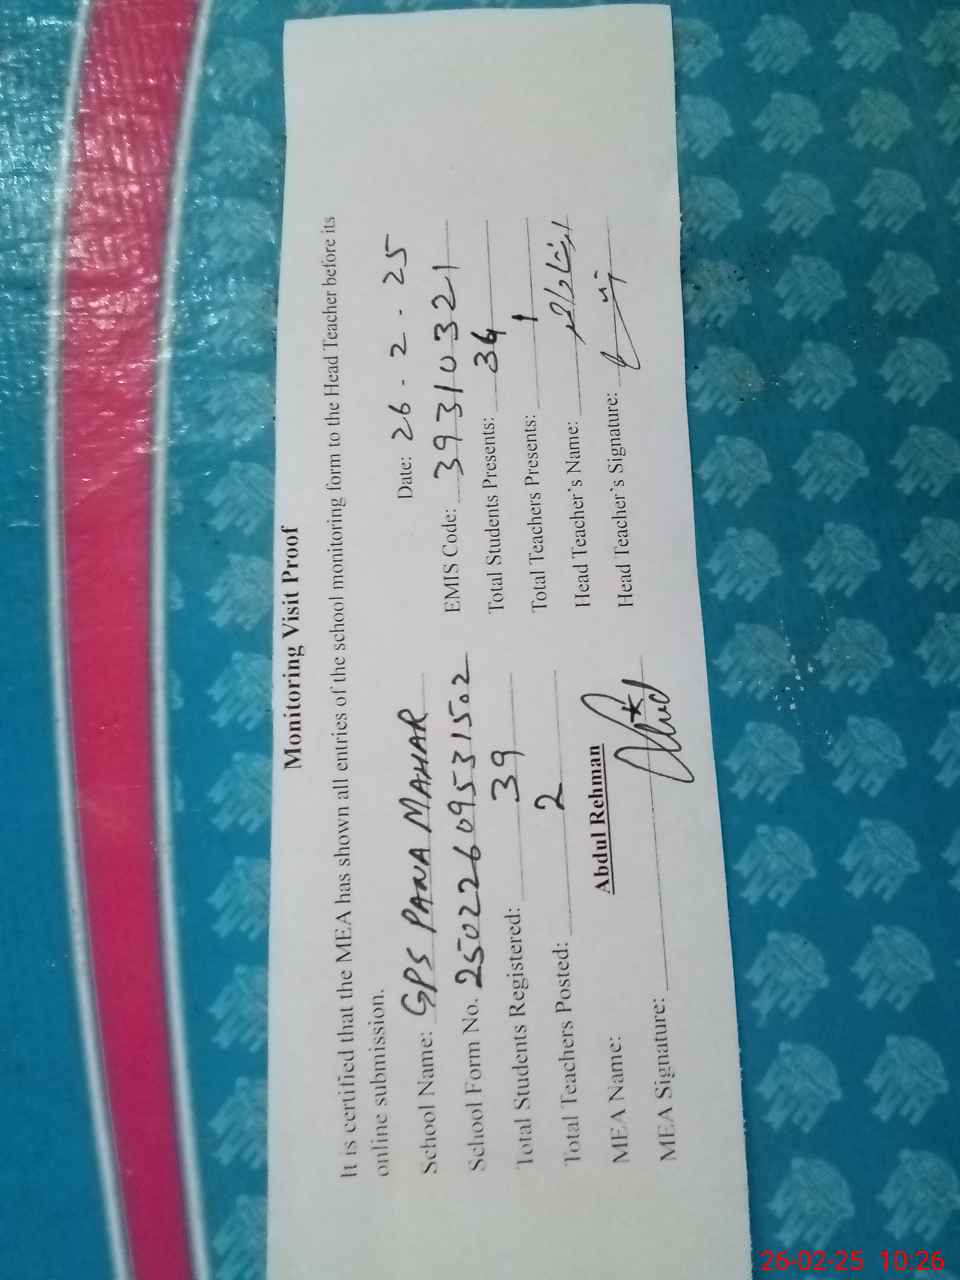 Monitoring Visit Proof
It is certified that the MEA has shown all entries of the school monitoring form to the Head Teacher before its
online submission.
Date: 26-2-25
School Name: GPS PANA MAHAR
EMIS Code: 39310321
School Form No. 25022609531502
Total Students Presents: 34
Total Students Registered: 39
Total Teachers Presents: 1
Total Teachers Posted: 2
Head Teacher's Name:
MEA Name: Abdul Rehman
Head Teacher's Signature:
MEA Signature:
26-02-25 10:26